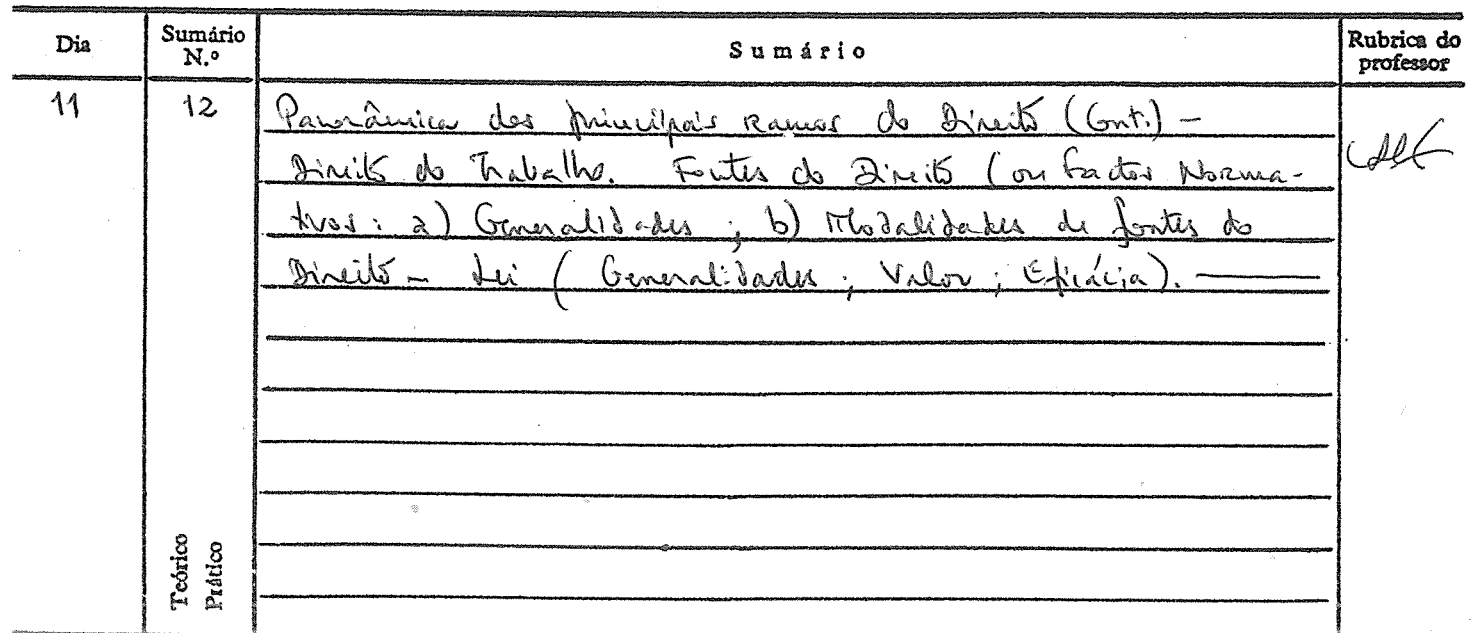 Dia
Sumário N.º
Sumário
Rubrica do professor
11
12
Panorâmica dos principais Ramos do Direito (Cont.) –
Direito do Trabalho. Fontes do Direito (ou Factos Norma-
tivos: a) Generalidades; b) Modalidades de fontes do
Direito – Lei (Generalidades; Valor; Eficácia).
Teórico
Prático